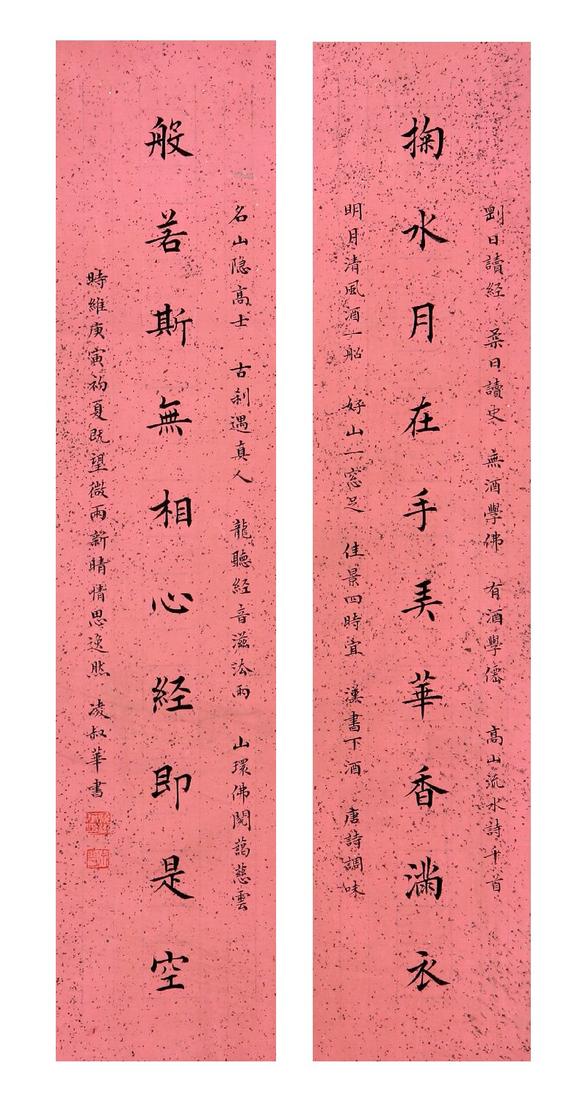 剛日讀経 柔日讀史 無酒學佛 有酒學儒 高山流水詩千首
掬水月在手美華香滿衣
明月清風酒一船 好山一窓足 佳景四時宜 漢書下酒 唐詩調味
名山隐高士 古刹遇真人 龍聽経音滋法雨 山環佛閣藹慈雲
般若斯無相心経即是空
時維庚寅初夏既望微雨新晴情思逸然 凌叔華書